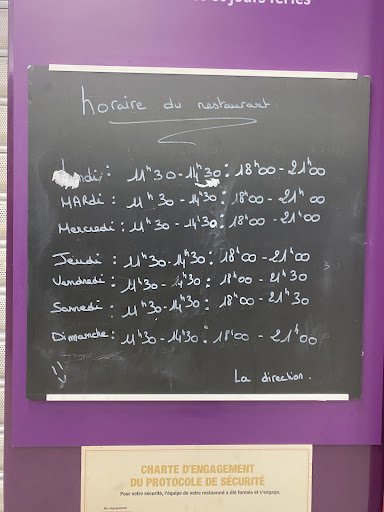 et jours fériés
horaire du restaurant
Lundi : 11h30 - 14h30 : 18h00 - 21h00
MARdi : 11h30 - 14h30 : 18h00 - 21h00
Mercredi : 11h30 - 14h30 : 18h00 - 21h00
Jeudi : 11h30 - 14h30 : 18h00 - 21h00
Vendredi : 11h30 - 14h30 : 18h00 - 21h30
Samedi : 11h30 - 14h30 : 18h00 - 21h30
Dimanche : 11h30 - 14h30 : 18h00 - 21h00
La direction.
CHARTE D'ENGAGEMENT
DU PROTOCOLE DE SÉCURITÉ
Pour votre sécurité, l'équipe de votre restaurant a été formée et s'engage.